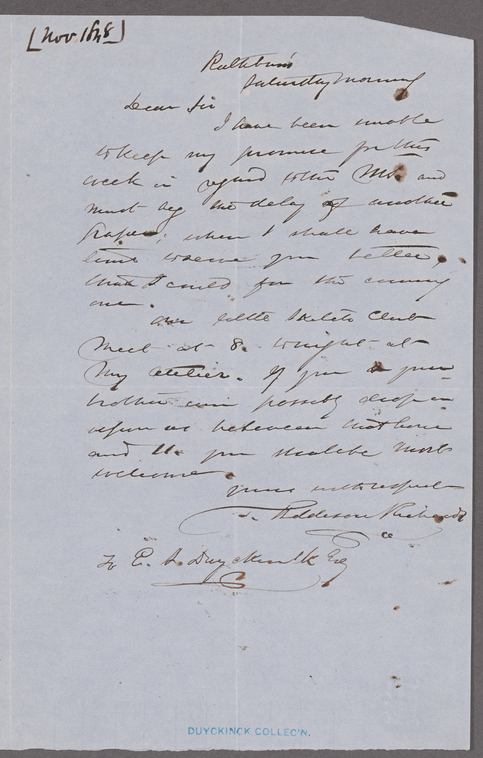 [Nov 1848]
Rathbun's
Saturday Morning
Dear Sir
I have been unable
to keep my promise for this
week in regard to the MS. and
must beg the delay of another
paper; when I shall have
time to serve you better,
than I could for the coming
one.
Our little Sketch Club
meet at 8. tonight at
my atelier. If you & your
brother can possibly drop in
upon us between that hour
and 11. you shall be most
welcome.
Yours with respect
T. Addison Richards
To E. A. Duyckinck Esq
DUYCKINCK COLLEC'N.